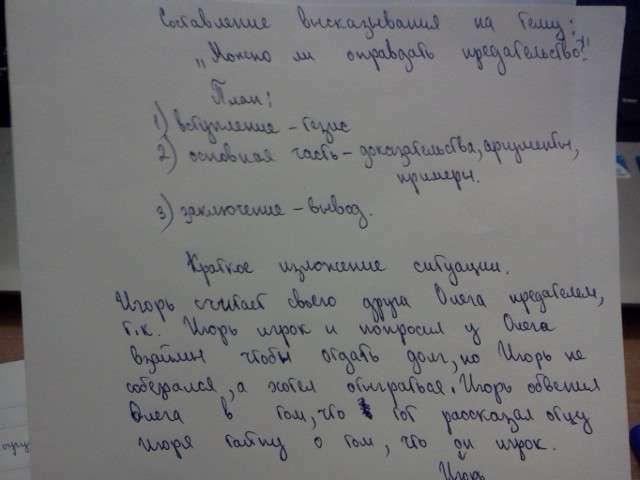 Составление высказывания на тему:
„Можно ли оправдать предательство?"
План:
1) вступление – тезис
2) основная часть – доказательства, аргументы,
примеры.
3) заключение – вывод.
Краткое изложение ситуации.
Игорь считает своего друга Олега предателем,
т.к. Игорь игрок и попросил у Олега
взаймы чтобы отдать долг, но Игорь не
соберался, а хотел отыграться. Игорь обвенил
Олега в том, что тот рассказал отцу
Игоря тайну о том, что он игрок.
Игорь